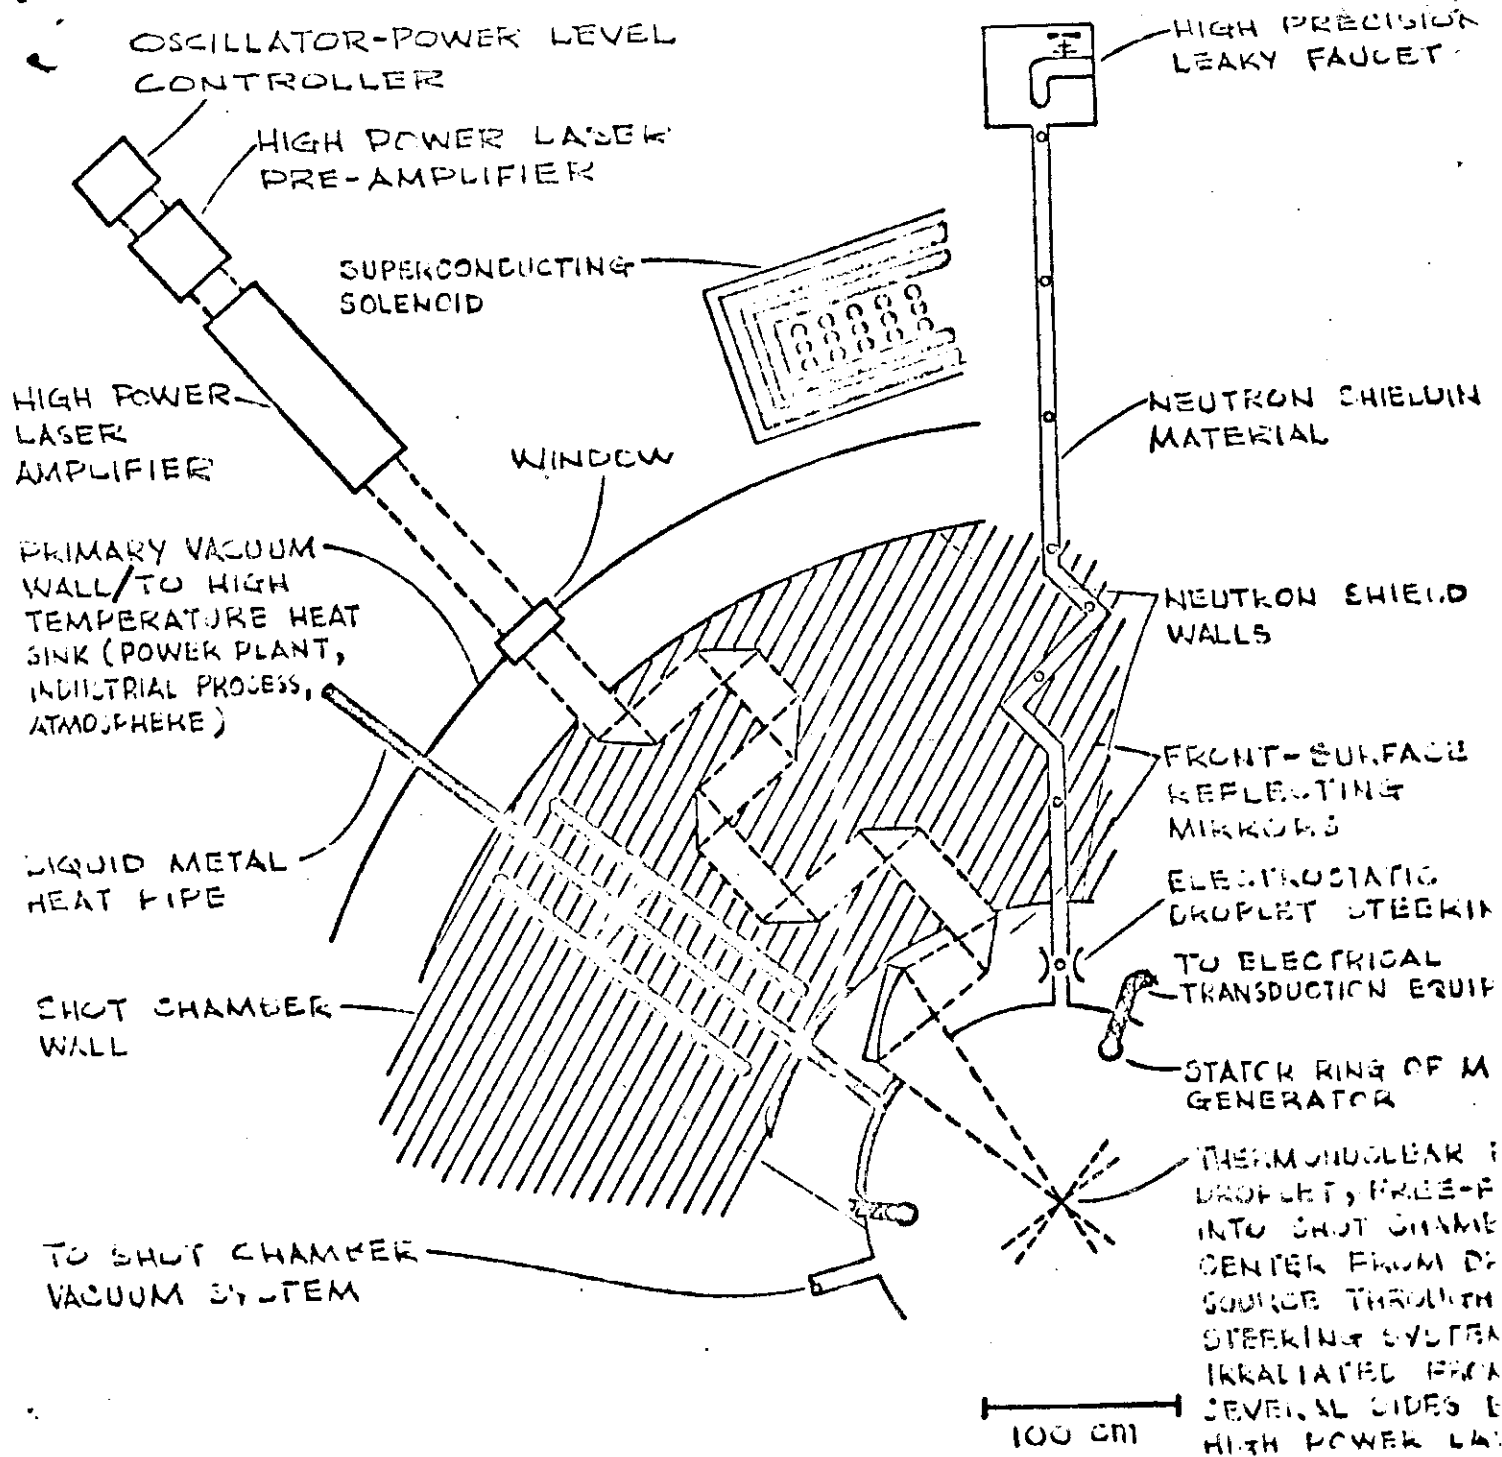 OSCILLATOR-POWER LEVEL
CONTROLLER
HIGH POWER LASER
PRE-AMPLIFIER
SUPERCONDUCTING
SOLENOID
HIGH POWER
LASER
AMPLIFIER
WINDOW
PRIMARY VACUUM
WALL/TO HIGH
TEMPERATURE HEAT
SINK (POWER PLANT,
INDUSTRIAL PROCESS,
ATMOSPHERE)
LIQUID METAL
HEAT PIPE
SHOT CHAMBER
WALL
TO SHOT CHAMBER
VACUUM SYSTEM
HIGH PRECISION
LEAKY FAUCET
NEUTRON SHIELDIN
MATERIAL
NEUTRON SHIELD
WALLS
FRONT-SURFACE
REFLECTING
MIRRORS
ELECTROSTATIC
DROPLET STEERIN
TO ELECTRICAL
TRANSDUCTION EQUIP
STATOR RING OF M
GENERATOR
THERMONUCLEAR F
DROPLET, FREE-F
INTO SHOT CHAMBE
CENTER FROM DR
SOURCE THROUGH
STEERING SYSTEM
IRRADIATED FROM
SEVERAL SIDES B
HIGH POWER LAS
100 cm